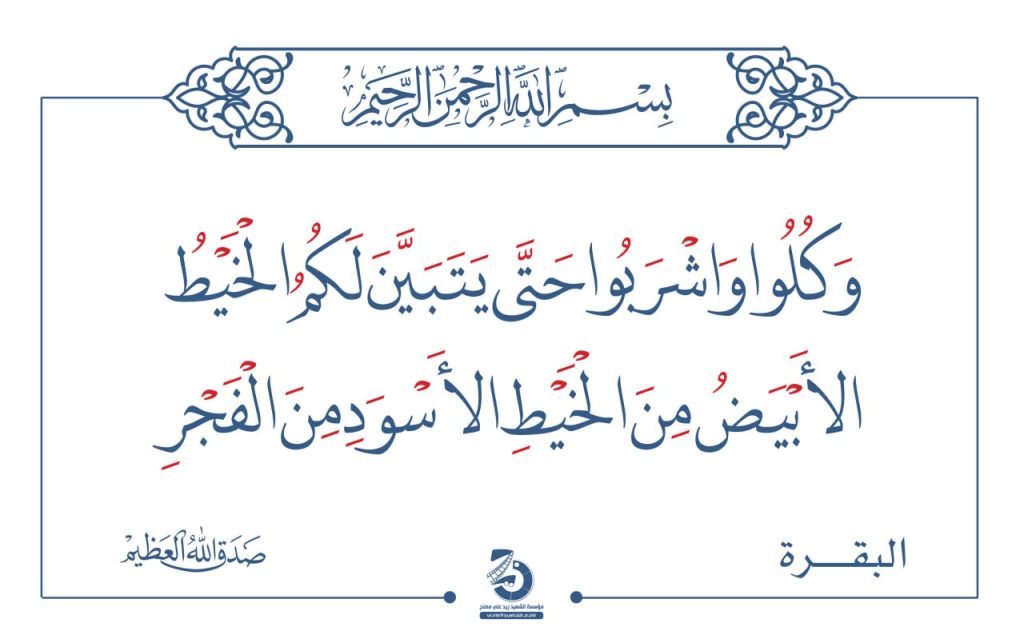 بِسْمِ اللَّهِ الرَّحْمَنِ الرَّحِيمِ
وَكُلُوا وَاشْرَبُوا حَتَّى يَتَبَيَّنَ لَكُمُ الْخَيْطُ
الأَبْيَضُ مِنَ الْخَيْطِ الأَسْوَدِ مِنَ الْفَجْرِ
البقرة
صَدَقَ اللهُ العَظِيمْ
مؤسسة الشهيد زيد علي مصلح